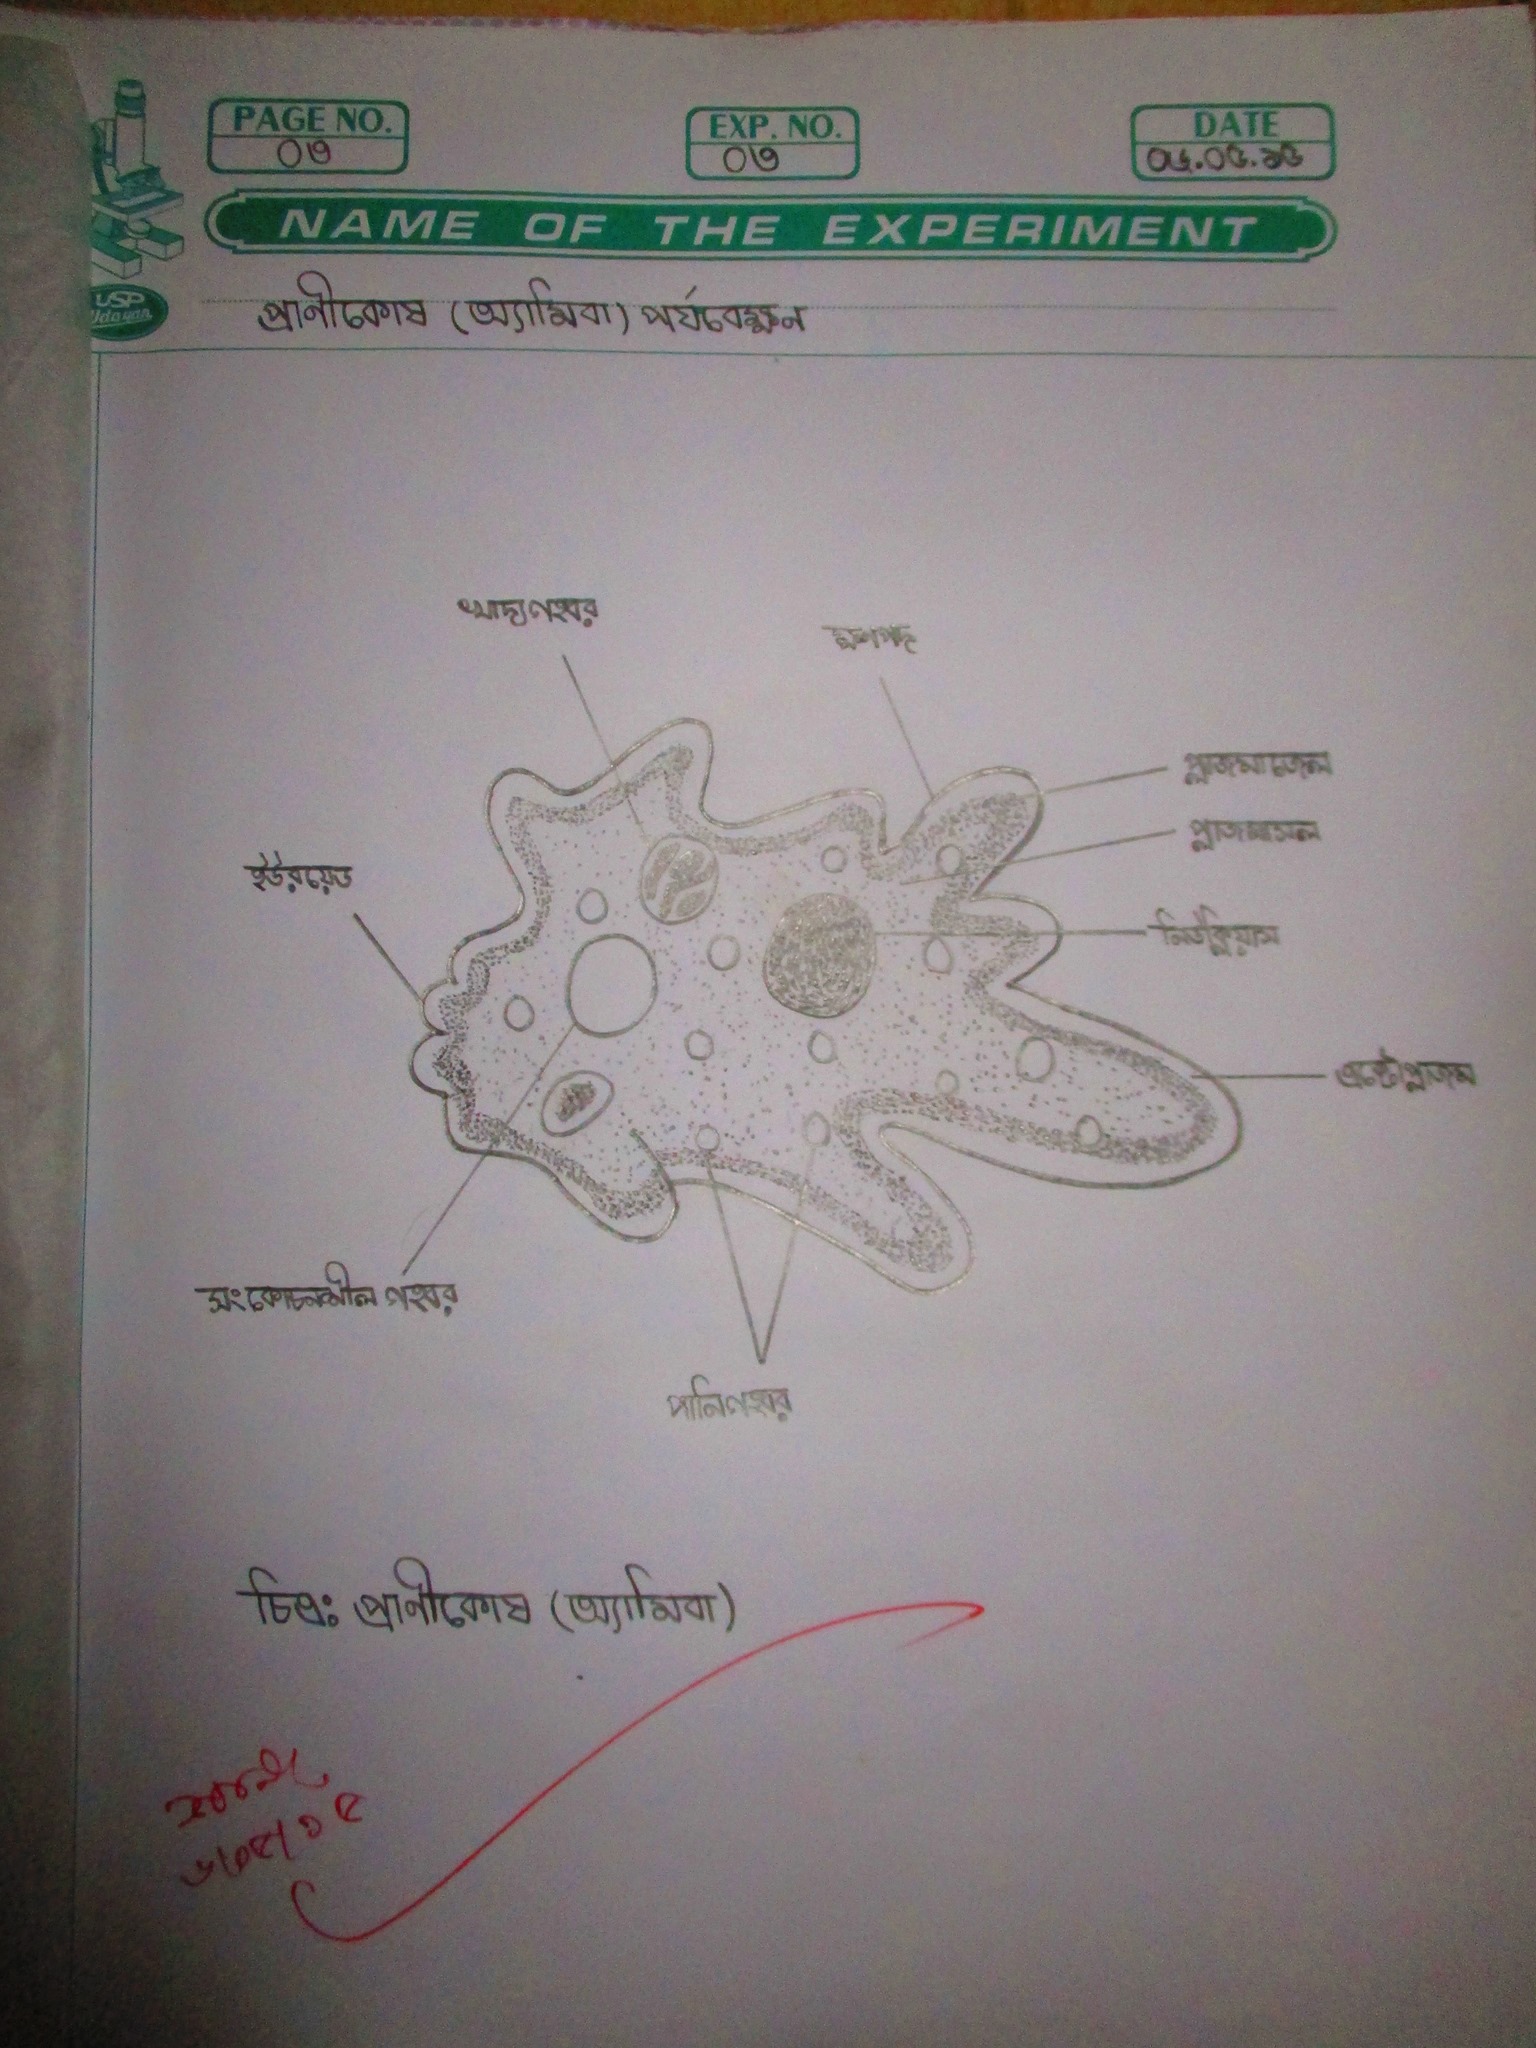 PAGE NO.
০৩
EXP. NO.
০৩
DATE
০৬.০৫.১৫
NAME OF THE EXPERIMENT
USP
Udayan
প্রানীকোষ (অ্যামিবা) পর্যবেক্ষন
খাদ্যগহ্বর
ক্ষণপদ
প্লাজমাজেল
প্লাজমাসল
ইউরয়েড
নিউক্লিয়াস
এক্টোপ্লাজম
সংকোচনশীল গহ্বর
পানিগহ্বর
চিত্র: প্রানীকোষ (অ্যামিবা)